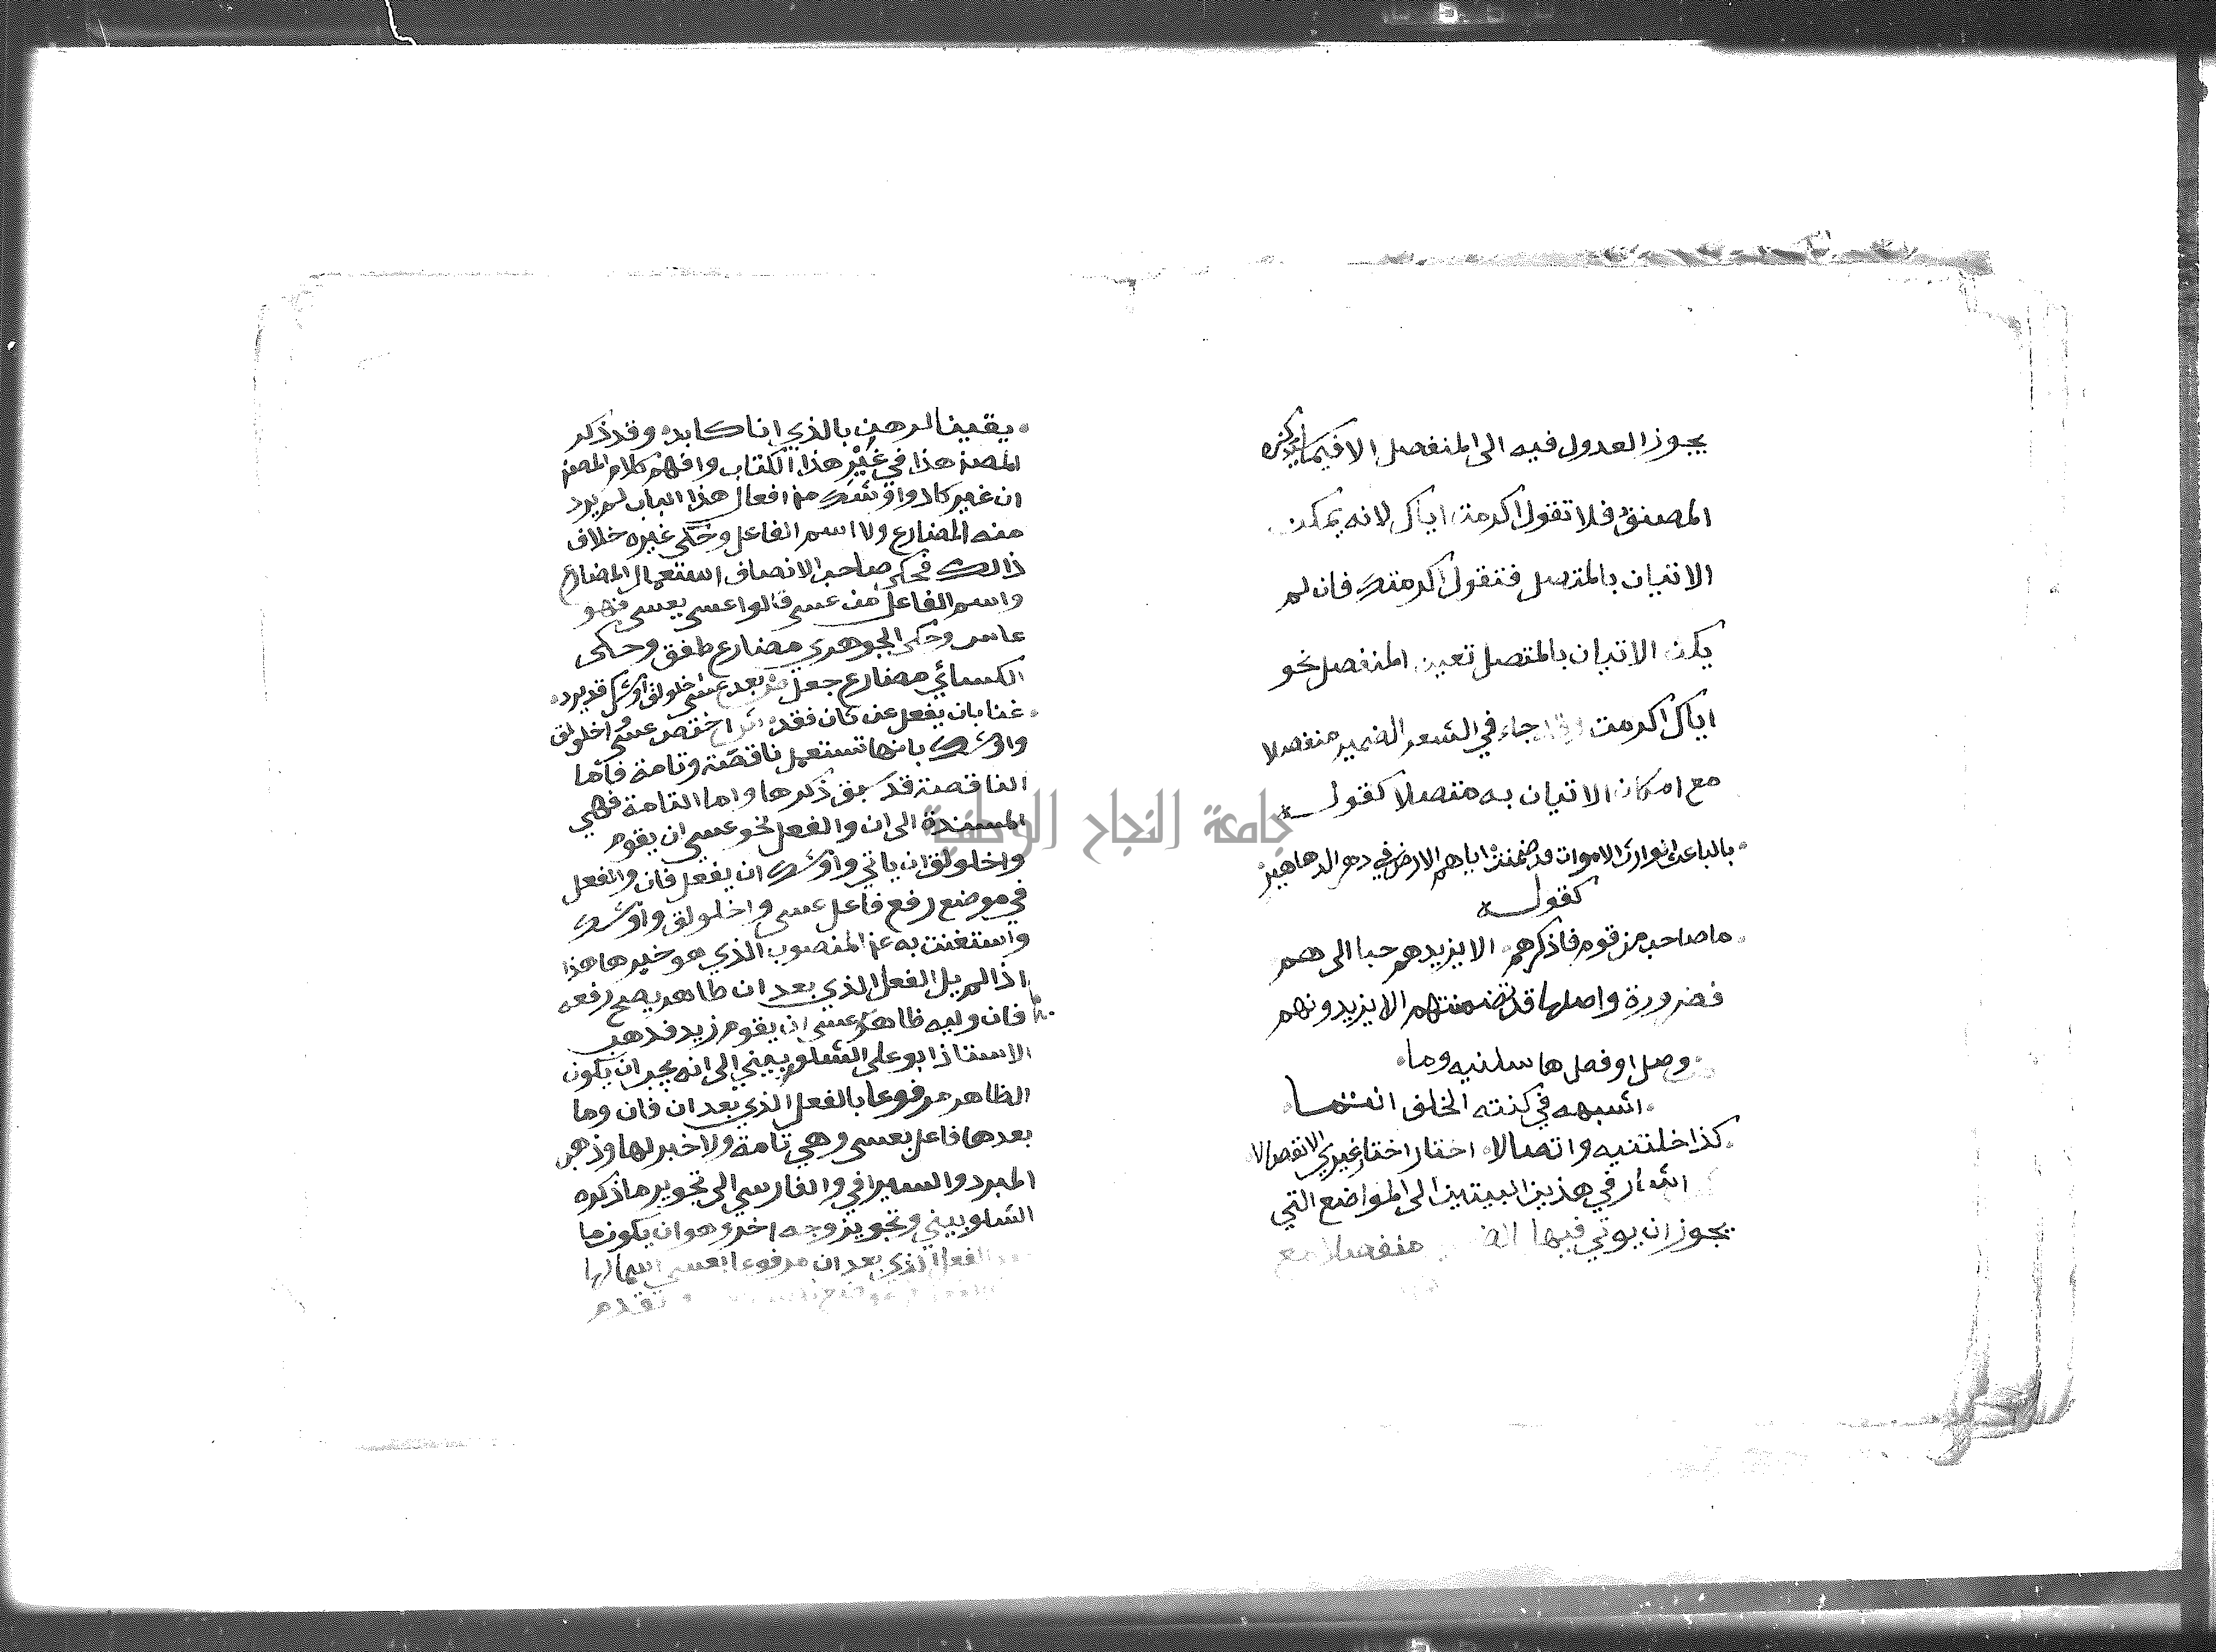 يجوز العدول فيه الى المنفصل الا فيما سيذكره
المصنف فلا تقول اكرمت اياك لانه يمكن
الاتيان بالمتصل فتقول اكرمتك فان لم
يكن الاتيان بالمتصل تعين المنفصل نحو
اياك اكرمت وقد جاء في الشعر الضمير منفصلا
مع امكان الاتيان به متصلا كقوله
بالباعث الوارث الاموات قد ضمنت اياهم الارض في دهر الدهاهير
كقوله
ما صاحب من قوم فاذكرهم الا يزيدهم حبا الى هم
فضرورة واصلها قد تضمنتهم الا يزيدونهم
وصل او فصل ها سلنيه وما
اشبهه في كنته الخلف انتما
كذا خلتنيه واتصالا اختار اختار غيري الانفصالا
اشار في هذين البيتين الى المواضع التي
يجوز ان يوتي فيها منفصلا مع
يقينا لرهن بالذي انا كابد وقد ذكر
المصنف هذا في غير هذا الكتاب وافهم كلام المصنف
ان غير كاد واوشك من افعال هذا الباب لم يرد
منه المضارع ولا اسم الفاعل وحكى غيره خلاف
ذالك فحكى صاحب الانصاف استعمال المضارع
واسم الفاعل من عسى قالوا عسى يعسى فهو
عاس وحكى الجوهري مضارع طفق وحكى
الكسائي مضارع جعل بعد عسى اخلولق اوشك قد يرد
غنا بان يفعل عن ثان فقد اختص عسى واخلولق
واوشك بانها تستعمل ناقصة وتامة فاما
الناقصة قد سبق ذكرها واما التامة فهي
المسندة الى ان والفعل نحو عسى ان يقوم
واخلولق ان ياتي واوشك ان يفعل فان والفعل
في موضع رفع فاعل عسى واخلولق واوشك
واستغنت به عن المنصوب الذي هو خبرها هذا
اذا لم يل الفعل الذي بعد ان ظاهر يصح رفعه
فان وليه ظاهر عسى ان يقوم زيد فذهب
الاستاذ ابو على الشلوبيني الى انه يجب ان يكون
الظاهر مرفوعا بالفعل الذي بعد ان فان وما
بعدها فاعل بعسى وهي تامة ولا خبر لها وذهب
المبرد والسيرافي والفارسي الى تجويز ما ذكره
الشلوبيني وتجويز وجه اخر وهو ان يكون ما
بعد الفعل الذي بعد ان مرفوعا بعسى اسما لها
تقدم
جامعة النجاح الوطنية